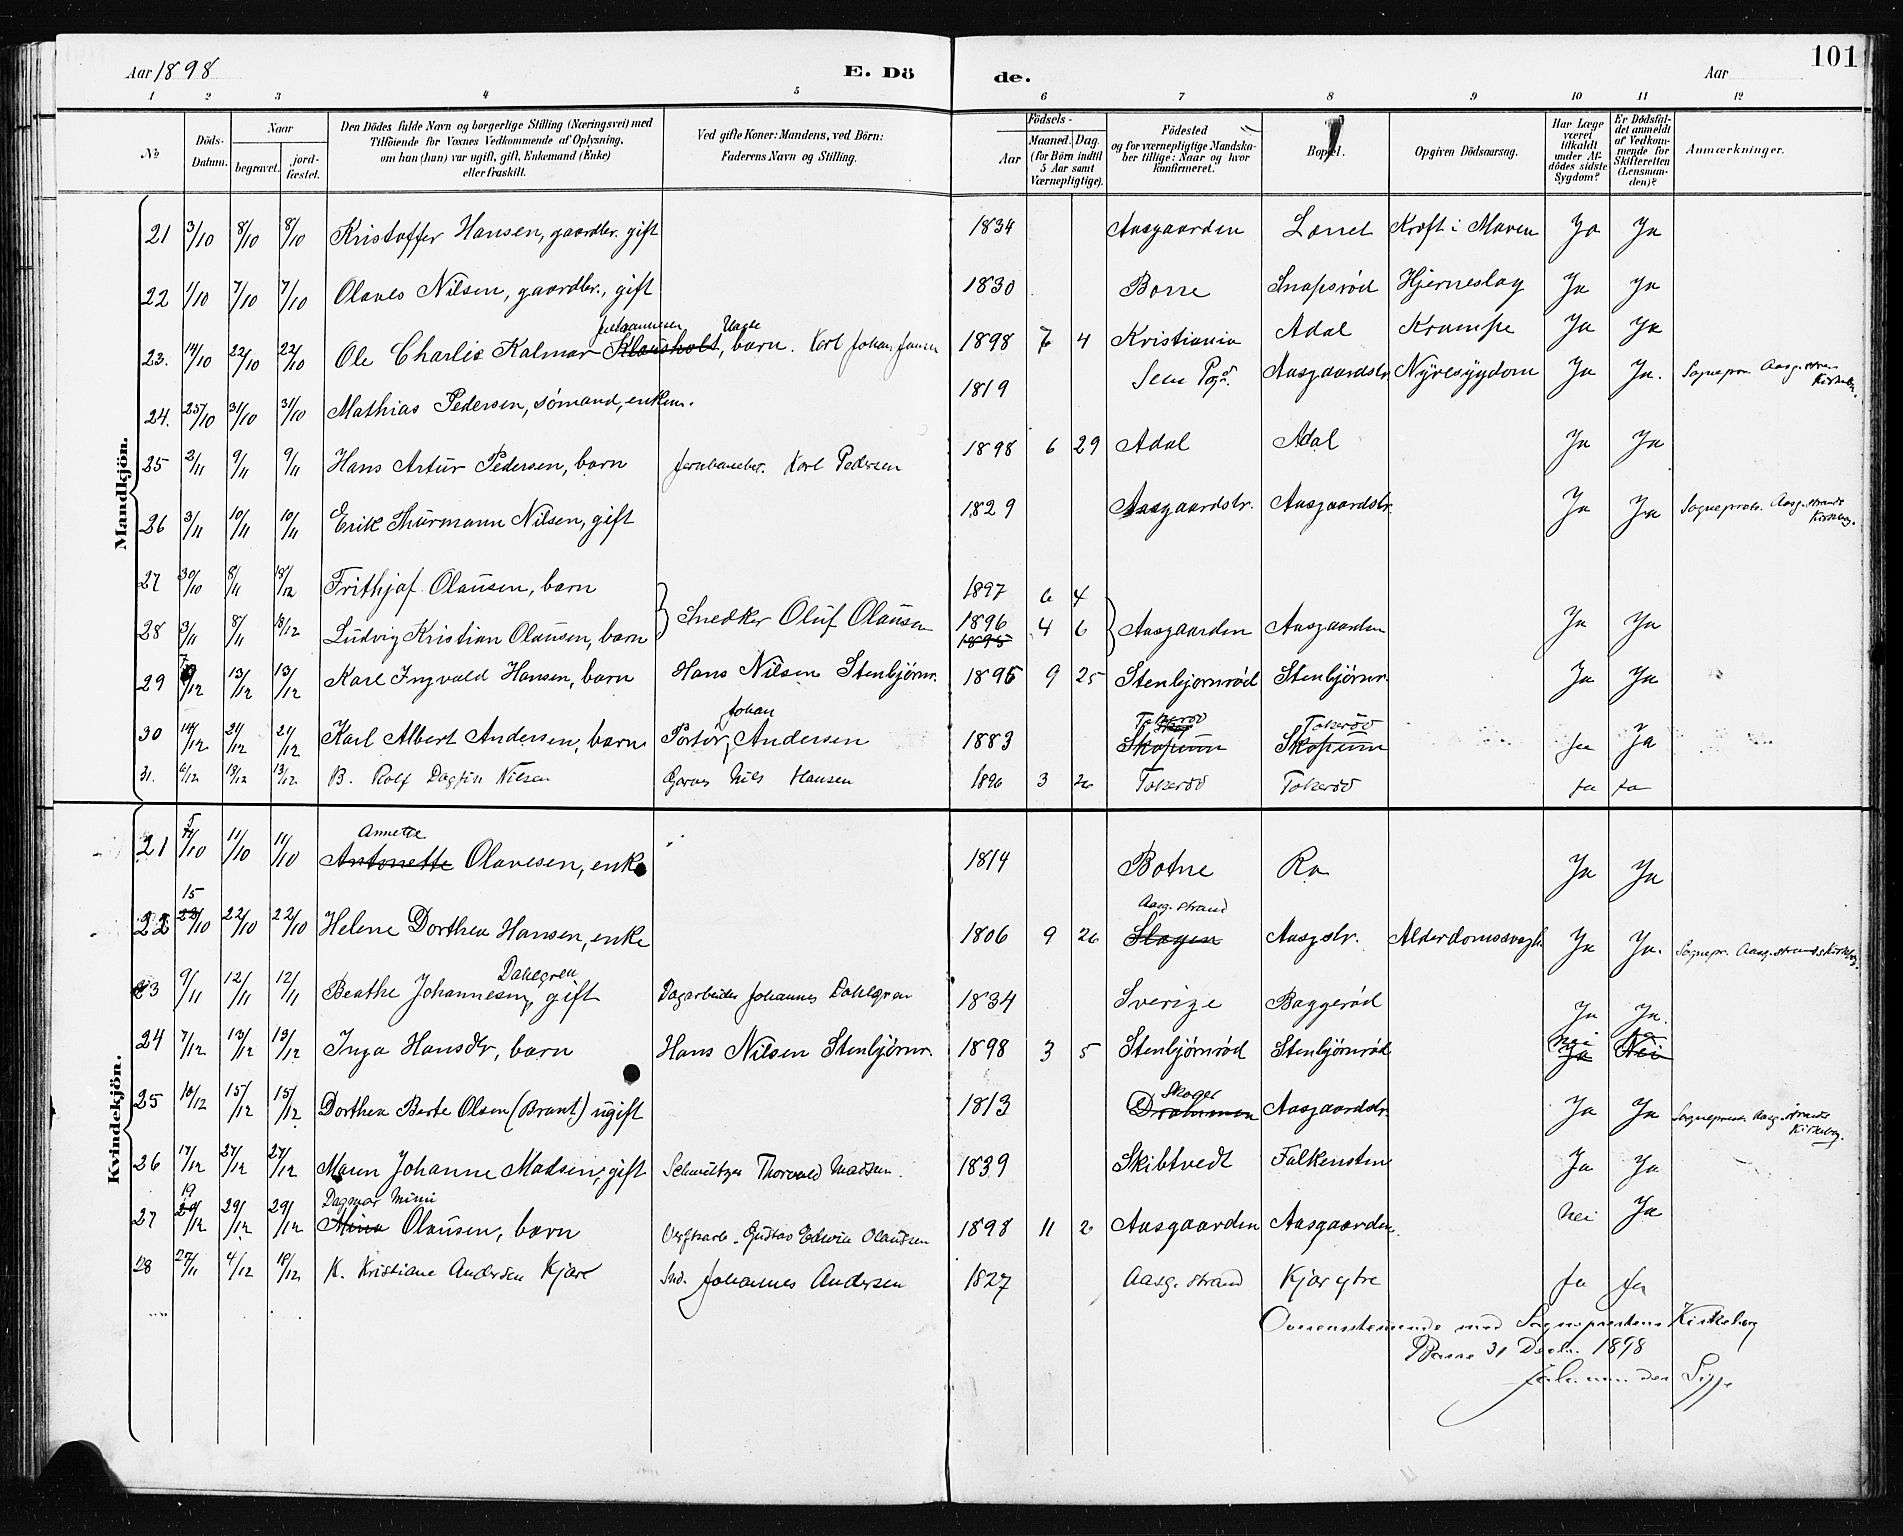 Aar 1898 E. Döde. Aar 101
1 2 3 4 5 6 7 8 9 10 11 12
No
Döds-Datum.
Naar
begravet.
jordfæstet.
Den Dödes fulde Navn og borgerlige Stilling (Næringsvei) med
Tilföiende for Voxnes Vedkommende af Oplysning,
om han (hun) var ugift, gift, Enkemand (Enke)
eller fraskilt.
Ved gifte Koner: Mandens, ved Börn:
Faderens Navn og Stilling.
Födsels-
Aar
Maaned. Dag.
(for Börn indtil
5 Aar samt
Værnepligtige).
Födested
og for værnepligtige Mandskaber tillige: Naar og hvor
konfirmeret.
Bopæl.
Opgiven Dödsaarsag.
Har Læge været tilkaldt under Afdödes sidste Sygdom?
Er Dödsfaldet anmeldt af Vedkommende for Skifteretten (Lensmanden)?
Anmærkninger.
Mandkjön.
21 3/10 8/10 8/10 Kristoffer Hansen, gaardbr. gift 1834 Aasgaarden Lønet Kræft i Maven Ja Ja
22 1/10 7/10 7/10 Olaves Nilsen, gaardbr., gift 1830 Borre Snapsrød Hjerneslag Ja Ja
23. 14/10 22/10 22/10 Ole Charlie Kalmar Klausholt, Johannesen barn. Karl Johan 1898 7 4 Kristiania Adal Krampe Ja Ja
24. 25/10 31/10 31/10 Mathias Pedersen, sømand, enkem. 1819 Sem Aasgaardstr. Nyresygdom Ja Ja.
25 2/11 9/11 9/11 Hans Artur Pedersen, barn Karl Pedersen 1898 6 29 Adal Adal Ja Ja
26 3/11 10/11 10/11 Erik Thurmann Nilsen, gift 1829 Aasgaardstr. Aasgaardstr. Ja Ja Sogneprotr. Aasg.strands Kirkebog.
27 30/10 8/11 18/12 Frithjof Olausen, barn 1897 6 4
28 3/11 8/11 18/12 Ludvig Kristian Olausen, barn Snedker Oluf Olausen 1896 1895 4 6 Aasgaarden Aasgaarden Ja Ja
29 7/12 13/12 13/12 Karl Ingvald Hansen, barn Hans Nilsen Stenbjørnr. 1895 9 25 Stenbjørnrød Stenbjørnr. Ja Ja
30 14/12 21/12 21/12 Karl Albert Andersen, barn Johan Andersen 1883 Tokerød Skopum Tokerød Skopum Ja Ja
31. 6/12 13/12 13/12 B. Rolf Dagfin Nilsen Nils Hansen 1896 3 26 Tokerød Tokerød Ja Ja
Kvindekjön.
21 11/10 11/10 Annette Antonette Olavesen, enke 1814 Botne Ra Ja Ja
22 15 22/10 22/10 22/10 Helene Dorthea Hansen, enke 1806 9 26 Aasg. strand Slagen Aasgstr. Alderdomssvagh. Ja Ja. Sognepr. Aasg.strands Kirkebog.
23 9/11 12/11 12/11 Beathe Johannesen, Dahlgren gift Dagarbeider Johannes Dahlgren 1834 Sverige Baggerød Ja Ja.
24 7/12 13/12 13/12 Inga Hansdtr, barn Hans Nilsen Stenbjørnr. 1898 3 5 Stenbjørnrød Stenbjørnrød Nei Ja Nei
25 10/12 15/12 15/12 Dorthea Berte Olsen (Brant) ugift 1813 Skoger Drammen Aasgaardstr. Ja Ja Aasg.strands Kirkebog.
26 17/12 27/12 27/12 Maren Johanne Madsen, gift Thorvald Madsen. 1839 Skibtvedt Falkensten Ja Ja
27 19 20/12 29/12 29/12 Dagmar Mimi Mina Olausen, barn Gustav Edvin Olaussen 1898 11 2 Aasgaarden Aasgaarden. Nei Ja
28 27/11 4/12 18/12 K. Kristiane Andersen Kjær Johannes Andersen 1827 Aasg. strand Kjær ytre Ja Ja
Overensstemmende med Sogneprestens Kirkebog
Borre 31 Decbr. 1898